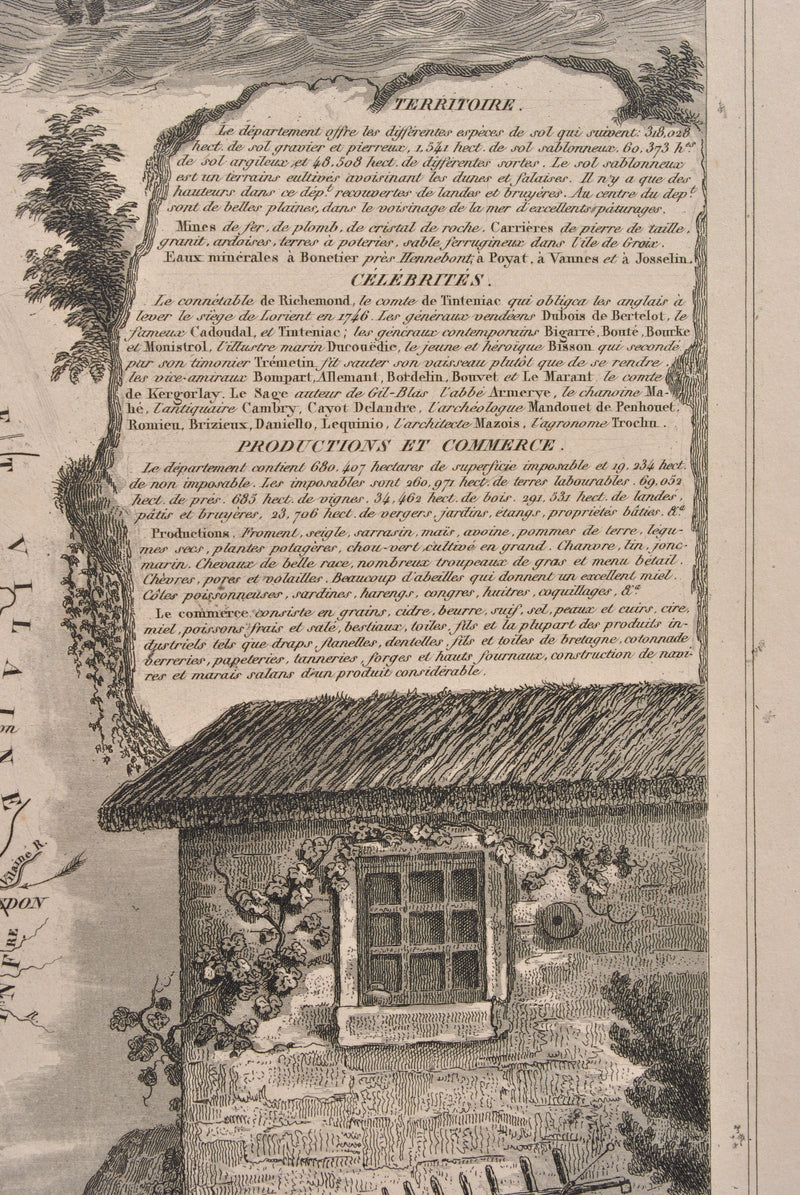 TERRITOIRE.
Le département offre les différentes espèces de sol qui suivent: 318,028
hect. de sol gravier et pierreux, 1,541 hect. de sol sablonneux, 60,373 h.res
de sol argileux et 48,508 hect. de différentes sortes. Le sol sablonneux
est un terrains cultivés avoisinant les dunes et falaises. Il n'y a que des
hauteurs dans ce dép.t recouvertes de landes et bruyères. Au centre du dep.t
sont de belles plaines, dans le voisinage de la mer d'excellents pâturages.
Mines de fer, de plomb, de cristal de roche, Carrières de pierre de taille,
granit, ardoises, terres à poteries, sable ferrugineux dans l'ile de Groix.
Eaux minérales à Bonetier près Hennebont, à Poyat, à Vannes et à Josselin.
CÉLÉBRITÉS.
Le connétable de Richemond, le comte de Tinteniac qui obligea les anglais à
lever le siège de Lorient en 1746. Les généraux vendéens Dubois de Bertelot, le
fameux Cadoudal, et Tinteniac; les généraux contemporains Bigarré, Bonté, Bourke
et Monistrol, l'illustre marin Ducouëdic, le jeune et héroïque Bisson qui secondé
par son timonier Trémetin fit sauter son vaisseau plutôt que de se rendre.
les vice-amiraux Bompart, Allemant, Botdelin, Bouvet et Le Marant, le comte
de Kergorlay. Le Sage auteur de Gil-Blas l'abbé Armerye, le chanoine Ma-
hé, l'antiquaire Cambry, Cayot Delandre, l'archéologue Mandouet de Penhouet,
Romieu, Brizieux, Daniello, Lequinio, l'architecte Mazois, l'agronome Trochu.
PRODUCTIONS ET COMMERCE.
Le département contient 680,407 hectares de superficie imposable et 19,234 hect.
de non imposable. Les imposables sont 260,971 hect. de terres labourables. 69,052
hect. de prés. 685 hect. de vignes, 34,462 hect. de bois. 291,531 hect. de landes,
pâtis et bruyères, 23,706 hect. de vergers jardins, étangs, propriétés bâties. &a
Productions. Froment, seigle, sarrasin, maïs, avoine, pommes de terre, légu-
mes secs, plantes potagères, chou-vert cultivé en grand. Chanvre, lin, jonc-
marin. Chevaux de belle race, nombreux troupeaux de gros et menu bétail.
Chèvres, porcs et volailles. Beaucoup d'abeilles qui donnent un excellent miel.
Côtes poissonneuses, sardines, harengs, congres, huîtres, coquillages, &a
Le commerce consiste en grains, cidre, beurre, suif, sel, peaux et cuirs, cire,
miel, poissons frais et salé, bestiaux, toiles, fils et la plupart des produits in-
dustriels tels que draps, flanelles, dentelles, fils et toiles de bretagne, cotonnade
verreries, papeteries, tanneries, forges et hauts fournaux, construction de navi-
res et marais salans d'un produit considérable.
E
T
VILAINE
on
Vilaine R.
DON
NFRE
R.